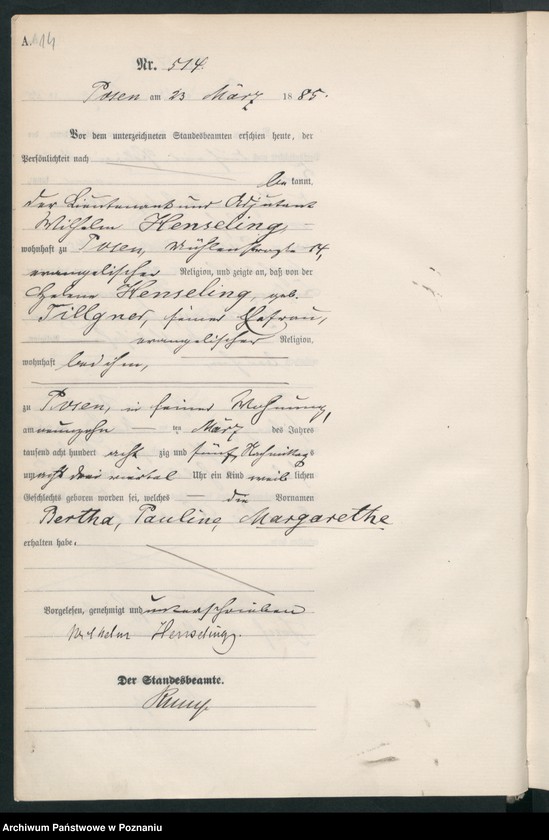 A. 14
Nr. 514.
Posen am 23 März 1885.
Vor dem unterzeichneten Standesbeamten erschien heute, der
Persönlichkeit nach
be kannt,
der Lieutenant und Adjutant
Wilhelm Henseling,
wohnhaft zu Posen, Mühlenstraße 14,
evangelischer Religion, und zeigte an, daß von der
Helene Henseling, geb.
Tillgner, seiner Ehefrau,
evangelischer Religion,
wohnhaft bei ihm,
zu Posen, in seiner Wohnung,
am neunzehn ten März des Jahres
tausend acht hundert acht zig und fünf, Nachmittags
um acht drei viertel Uhr ein Kind weib lichen
Geschlechts geboren worden sei, welches die Vornamen
Bertha, Pauline, Margarethe
erhalten habe.
Vorgelesen, genehmigt und unterschrieben
Wilhelm Henseling.
Der Standesbeamte.
Archiwum Państwowe w Poznaniu